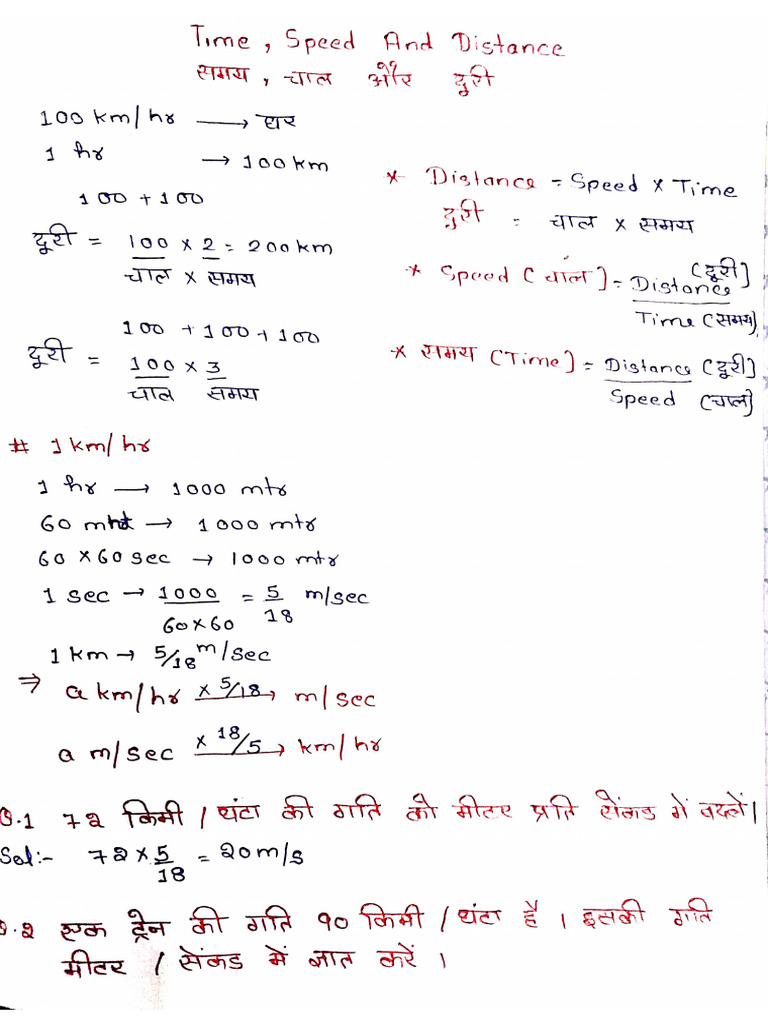 Time, Speed And Distance
समय, चाल और दूरी
100 km/hr → घर
1 hr → 100 km
100 + 100
दूरी = 100 × 2 = 200 km
चाल × समय
100 + 100 + 100
दूरी = 100 × 3
चाल समय
* Distance = Speed × Time
दूरी = चाल × समय
* Speed (चाल) = Distance (दूरी)
Time (समय)
* समय (Time) = Distance (दूरी)
Speed (चाल)
# 1 km/hr
1 hr → 1000 mtr
60 → 1000 mtr
60 × 60 sec → 1000 mtr
1 sec → 1000/60×60 = 5/18 m/sec
1 km → 5/18 m/sec
⇒ a km/hr × 5/18 → m/sec
a m/sec × 18/5 → km/hr
Q.1 72 किमी / घंटा की गति को मीटर प्रति सेंकड में बदलें।
Sol:- 72 × 5/18 = 20 m/s
Q.2 एक ट्रेन की गति १० किमी / घंटा है । इसकी गति
मीटर / सेंकड में ज्ञात करें ।